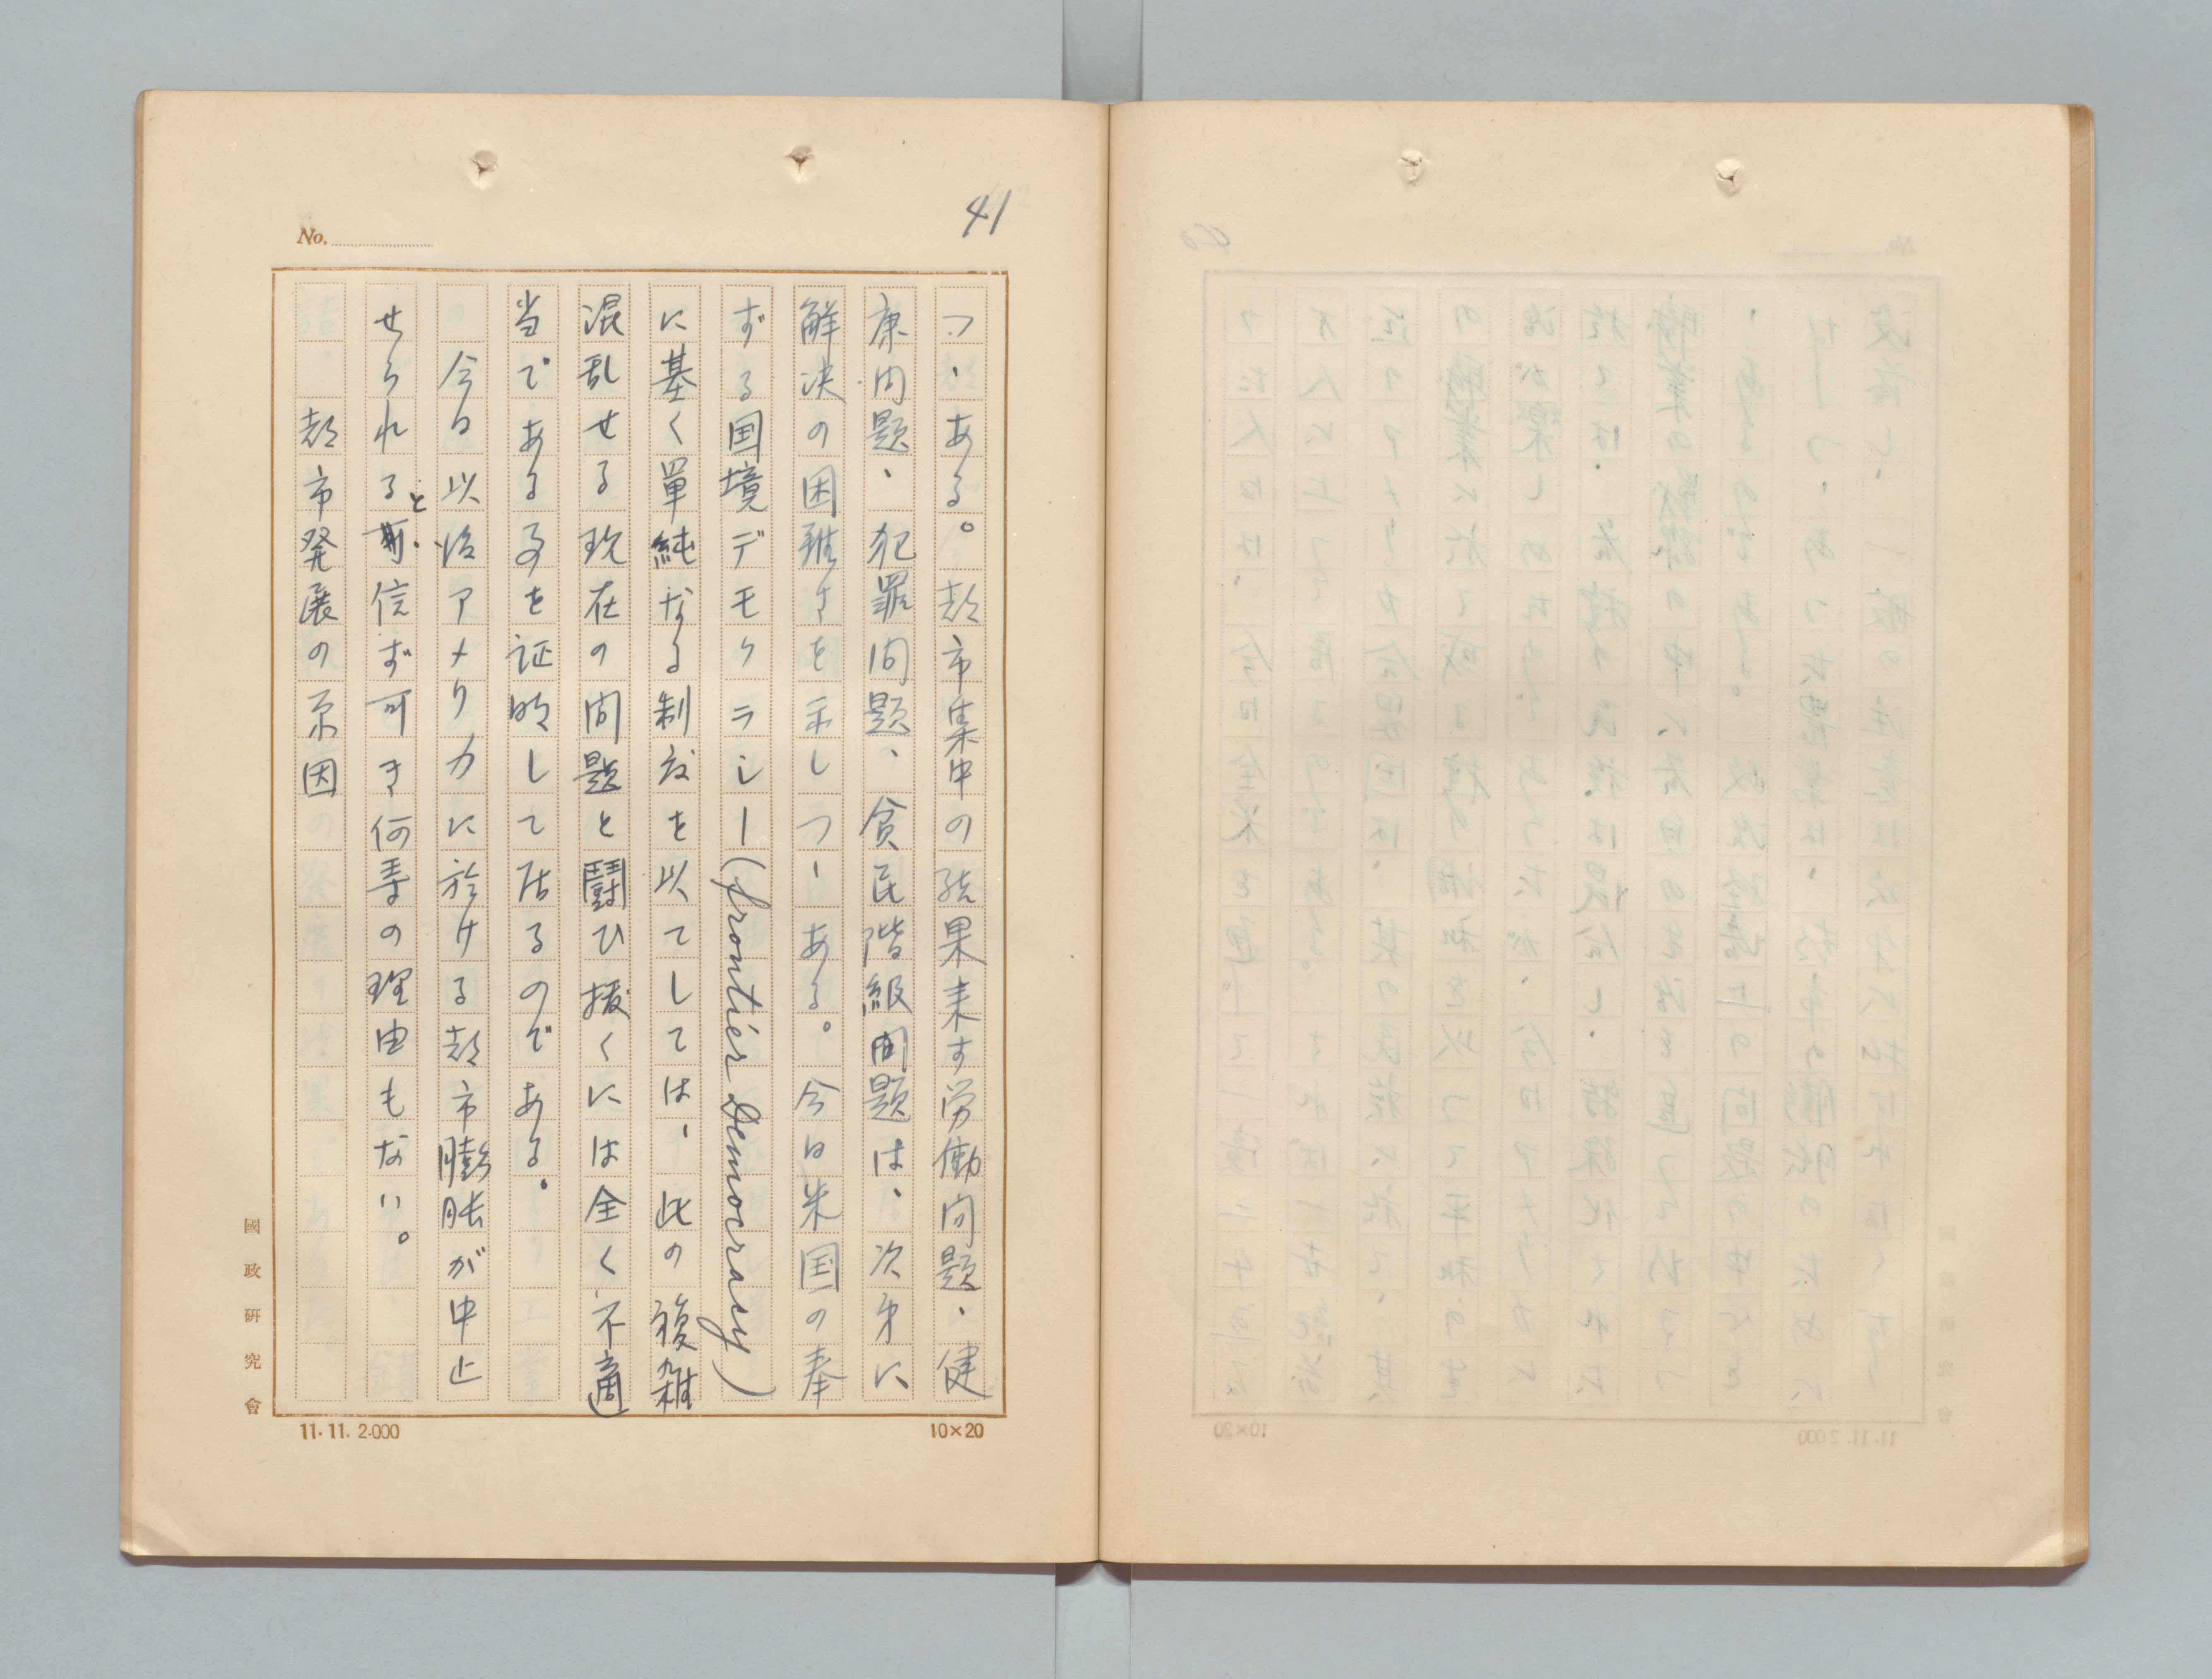 41
No.
つゝある。都市集中の結果来す労働問題、健
康問題、犯罪問題、貧民階級問題は、次第に
解決の困難さを示しつゝある。今日米国の奉
ずる国境デモクラシー(frontier Democracy)
に基く単純なる制度を以てしては、此の複雑
混乱せる現在の問題と闘ひ援くには全く不適
当である事を証明して居るのである。
今日以後アメリカに於ける都市膨脹が中止
せられると信ず可き何等の理由もない。
都市発展の原因
國政研究會
11.11.2.000
10×20